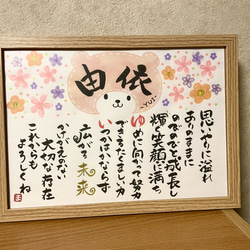 由依
-YUI-
思いやりに溢れ
ありのままに
のびのびと成長し
輝く笑顔に満ち
ゆめに向かって努力
できるたくましい力
いつかはかならず
広がる未来
かけがえのない
大切な存在
これからも
よろしくね